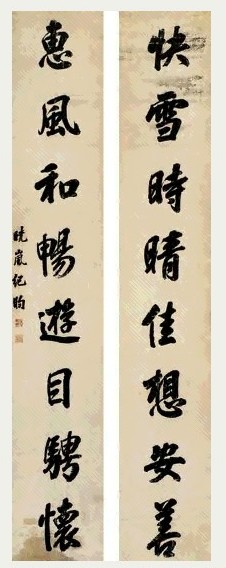 快雪時晴佳想安善
惠風和暢遊目騁懷
曉嵐紀昀